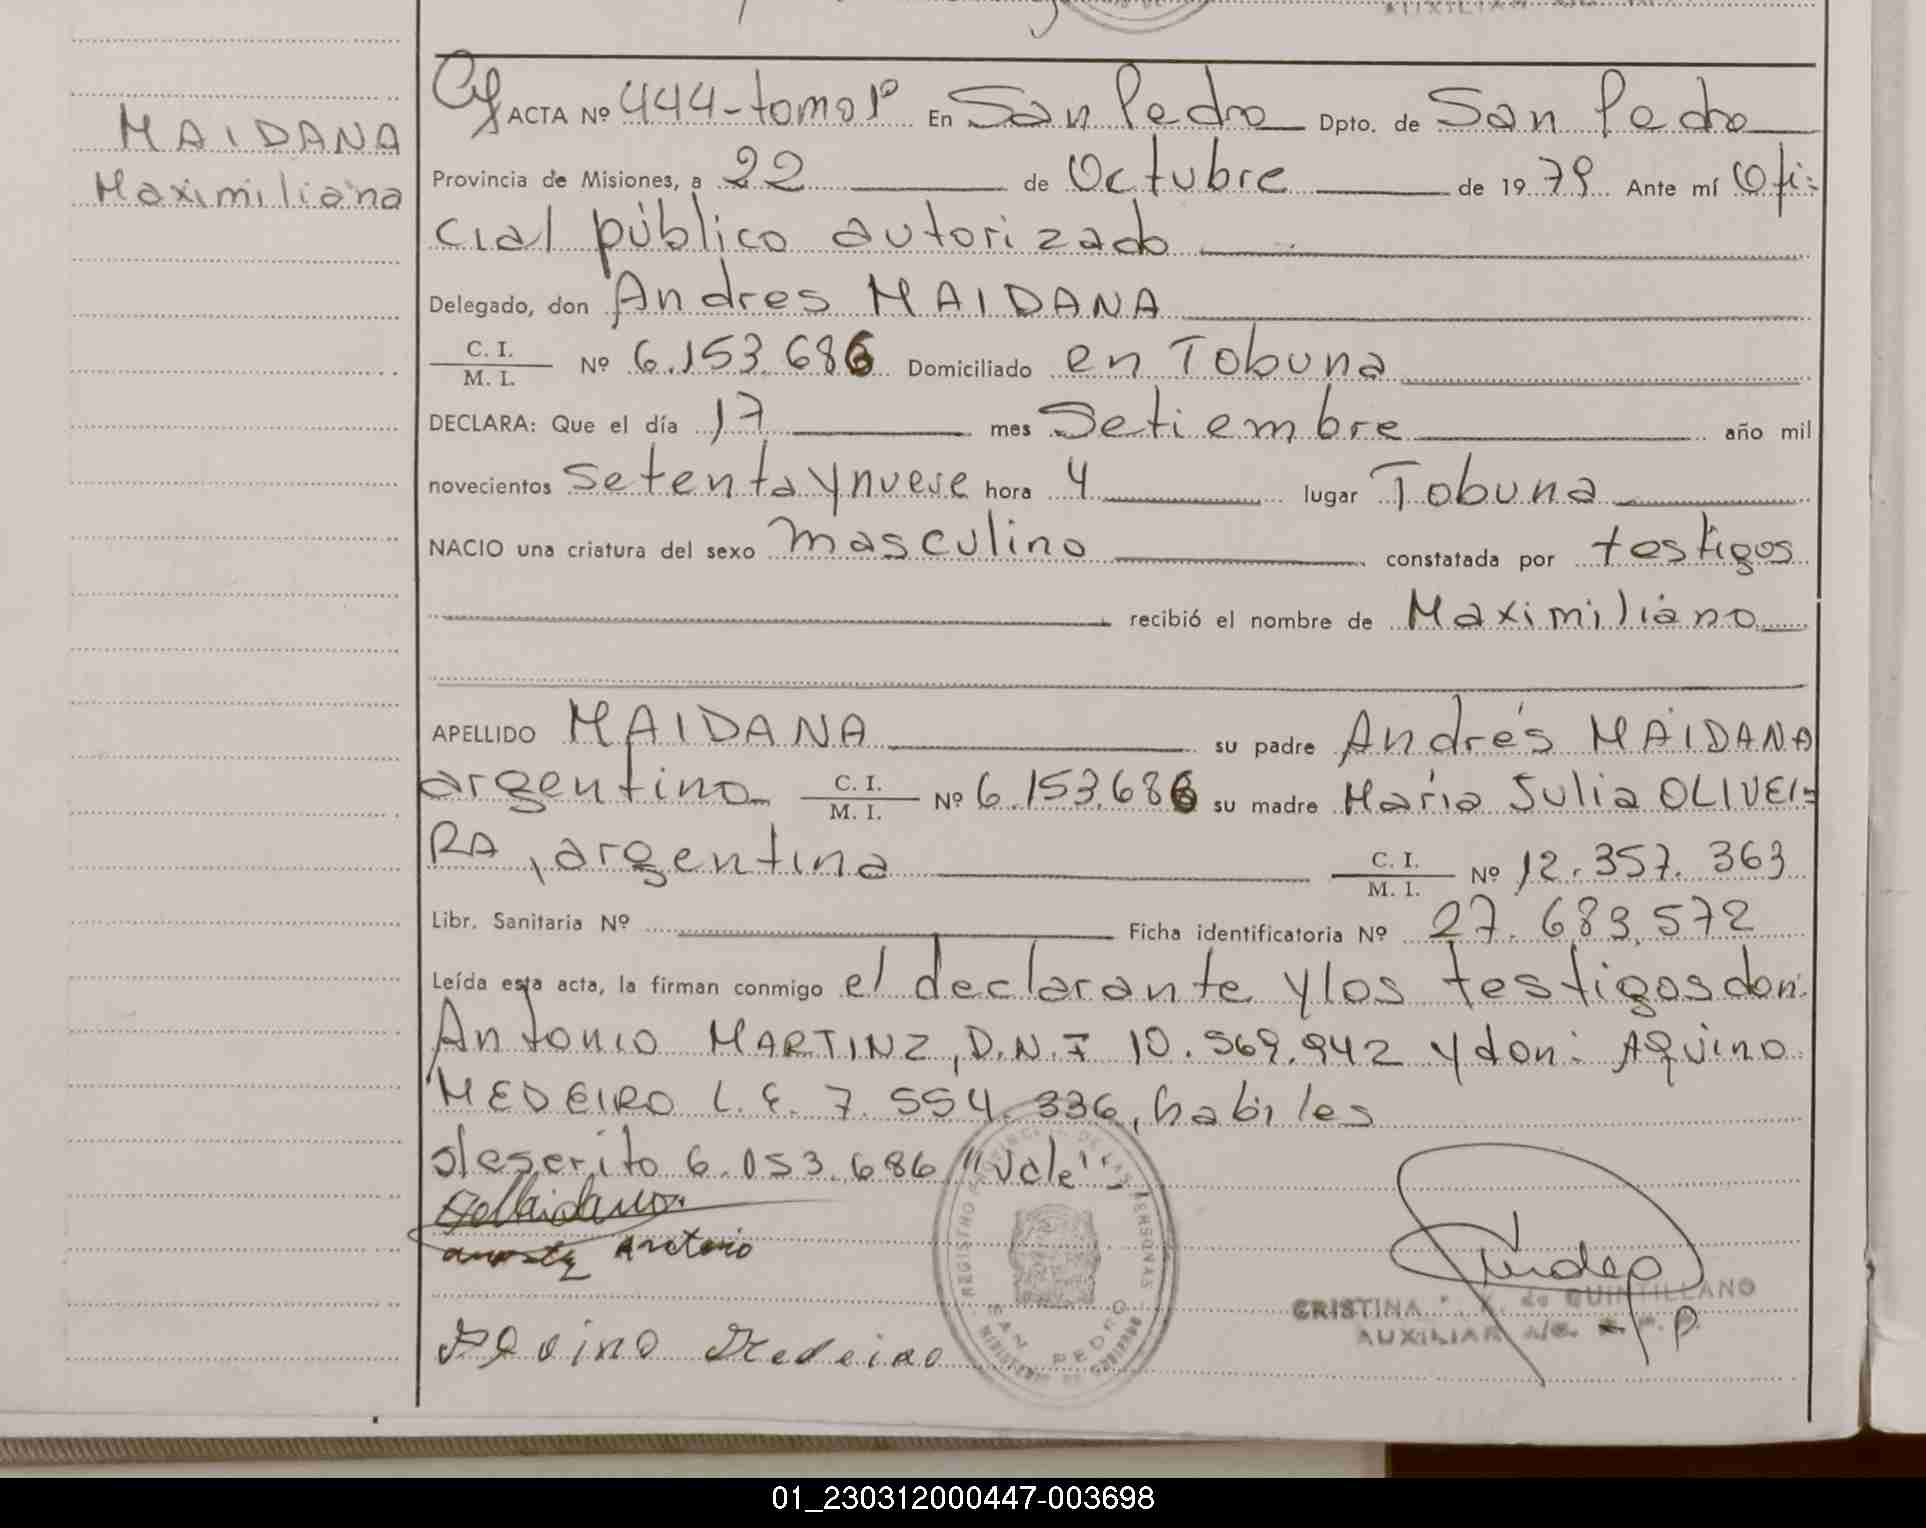 MAIDANA
Maximiliana
ACTA Nº 444-tomo 1º En San Pedro Dpto. de San Pedro
Provincia de Misiones, a 22 de Octubre de 1979 Ante mí Ofi=
cial público autorizado
Delegado, don Andres MAIDANA
C. I. / M. I. Nº 6.153.686 Domiciliado en Tobuna
DECLARA: Que el día 17 mes Setiembre año mil
novecientos setenta y nueve hora 4 lugar Tobuna
NACIO una criatura del sexo masculino constatada por testigos
recibió el nombre de Maximiliano
APELLIDO MAIDANA su padre Andrés MAIDANA
argentino C. I. / M. I. Nº 6.153.686 su madre Maria Julia OLIVEI=
RA, argentina C. I. / M. I. Nº 12.357.363
Libr. Sanitaria Nº Ficha identificatoria Nº 27.683.572
Leída esta acta, la firman conmigo el declarante y los testigos don:
Antonio MARTINZ, D.N.I 10.569.942 y don: Aquino
MEDEIRO L.E. 7.554.336, habiles
6.053.686 "Vale"
Maidana
Antonio
Medeiro
REGISTRO PROVINCIAL DE LAS PERSONAS
SAN PEDRO
MINISTERIO DE GOBIERNO
CRISTINA K. de QUINTILLANO
AUXILIAR
01_230312000447-003698